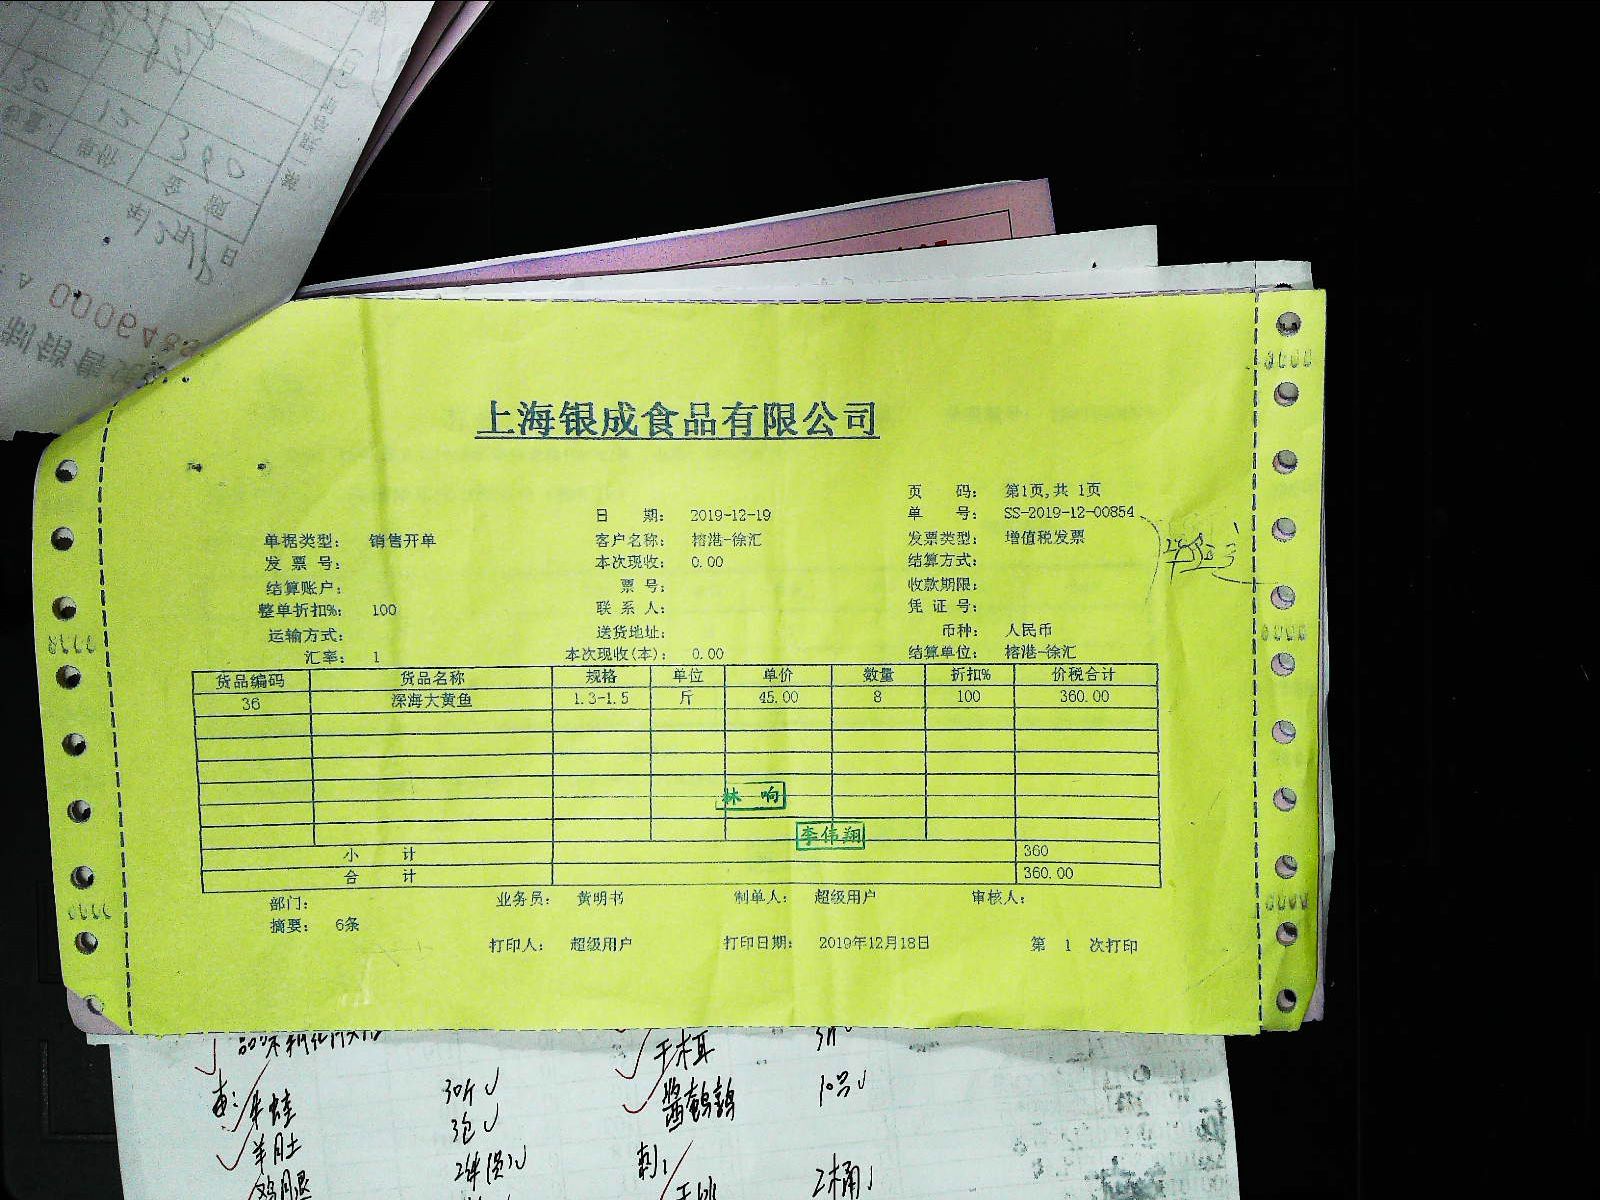 上海银成食品有限公司
页 码: 第1页,共 1页
日 期: 2019-12-19 单 号: SS-2019-12-00854
单据类型: 销售开单 客户名称: 榕港-徐汇 发票类型: 增值税发票
发 票 号: 本次现收: 0.00 结算方式:
结算账户: 票 号: 收款期限:
整单折扣%: 100 联 系 人: 凭 证 号:
运输方式: 送货地址: 币种: 人民币
汇率: 1 本次现收(本): 0.00 结算单位: 榕港-徐汇
货品编码 货品名称 规格 单位 单价 数量 折扣% 价税合计
36 深海大黄鱼 1.3-1.5 斤 45.00 8 100 360.00
林 响
李伟翔
小 计 360
合 计 360.00
部门: 业务员: 黄明书 制单人: 超级用户 审核人:
摘要: 6条
打印人: 超级用户 打印日期: 2019年12月18日 第 1 次打印
干木耳
牛蛙 30斤
酱鹌鹑
羊肚 3包
2桶